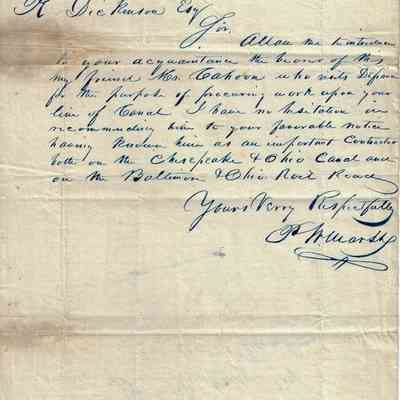 R Dickinson Esq
Sir,
Allow me to introduce
to your acquantance the bearer of this
my friend Mr. Cahoon who visits Defiance
for the purpose of procuring work upon your
line of Canal I have no hesitation in
recommending him to your favorable notice
having known him as an important Contractor
both on the Chesepeake & Ohio Canal and
on the Baltimore & Ohio Rail Road
Yours Verry Respectfully
P W Marsh